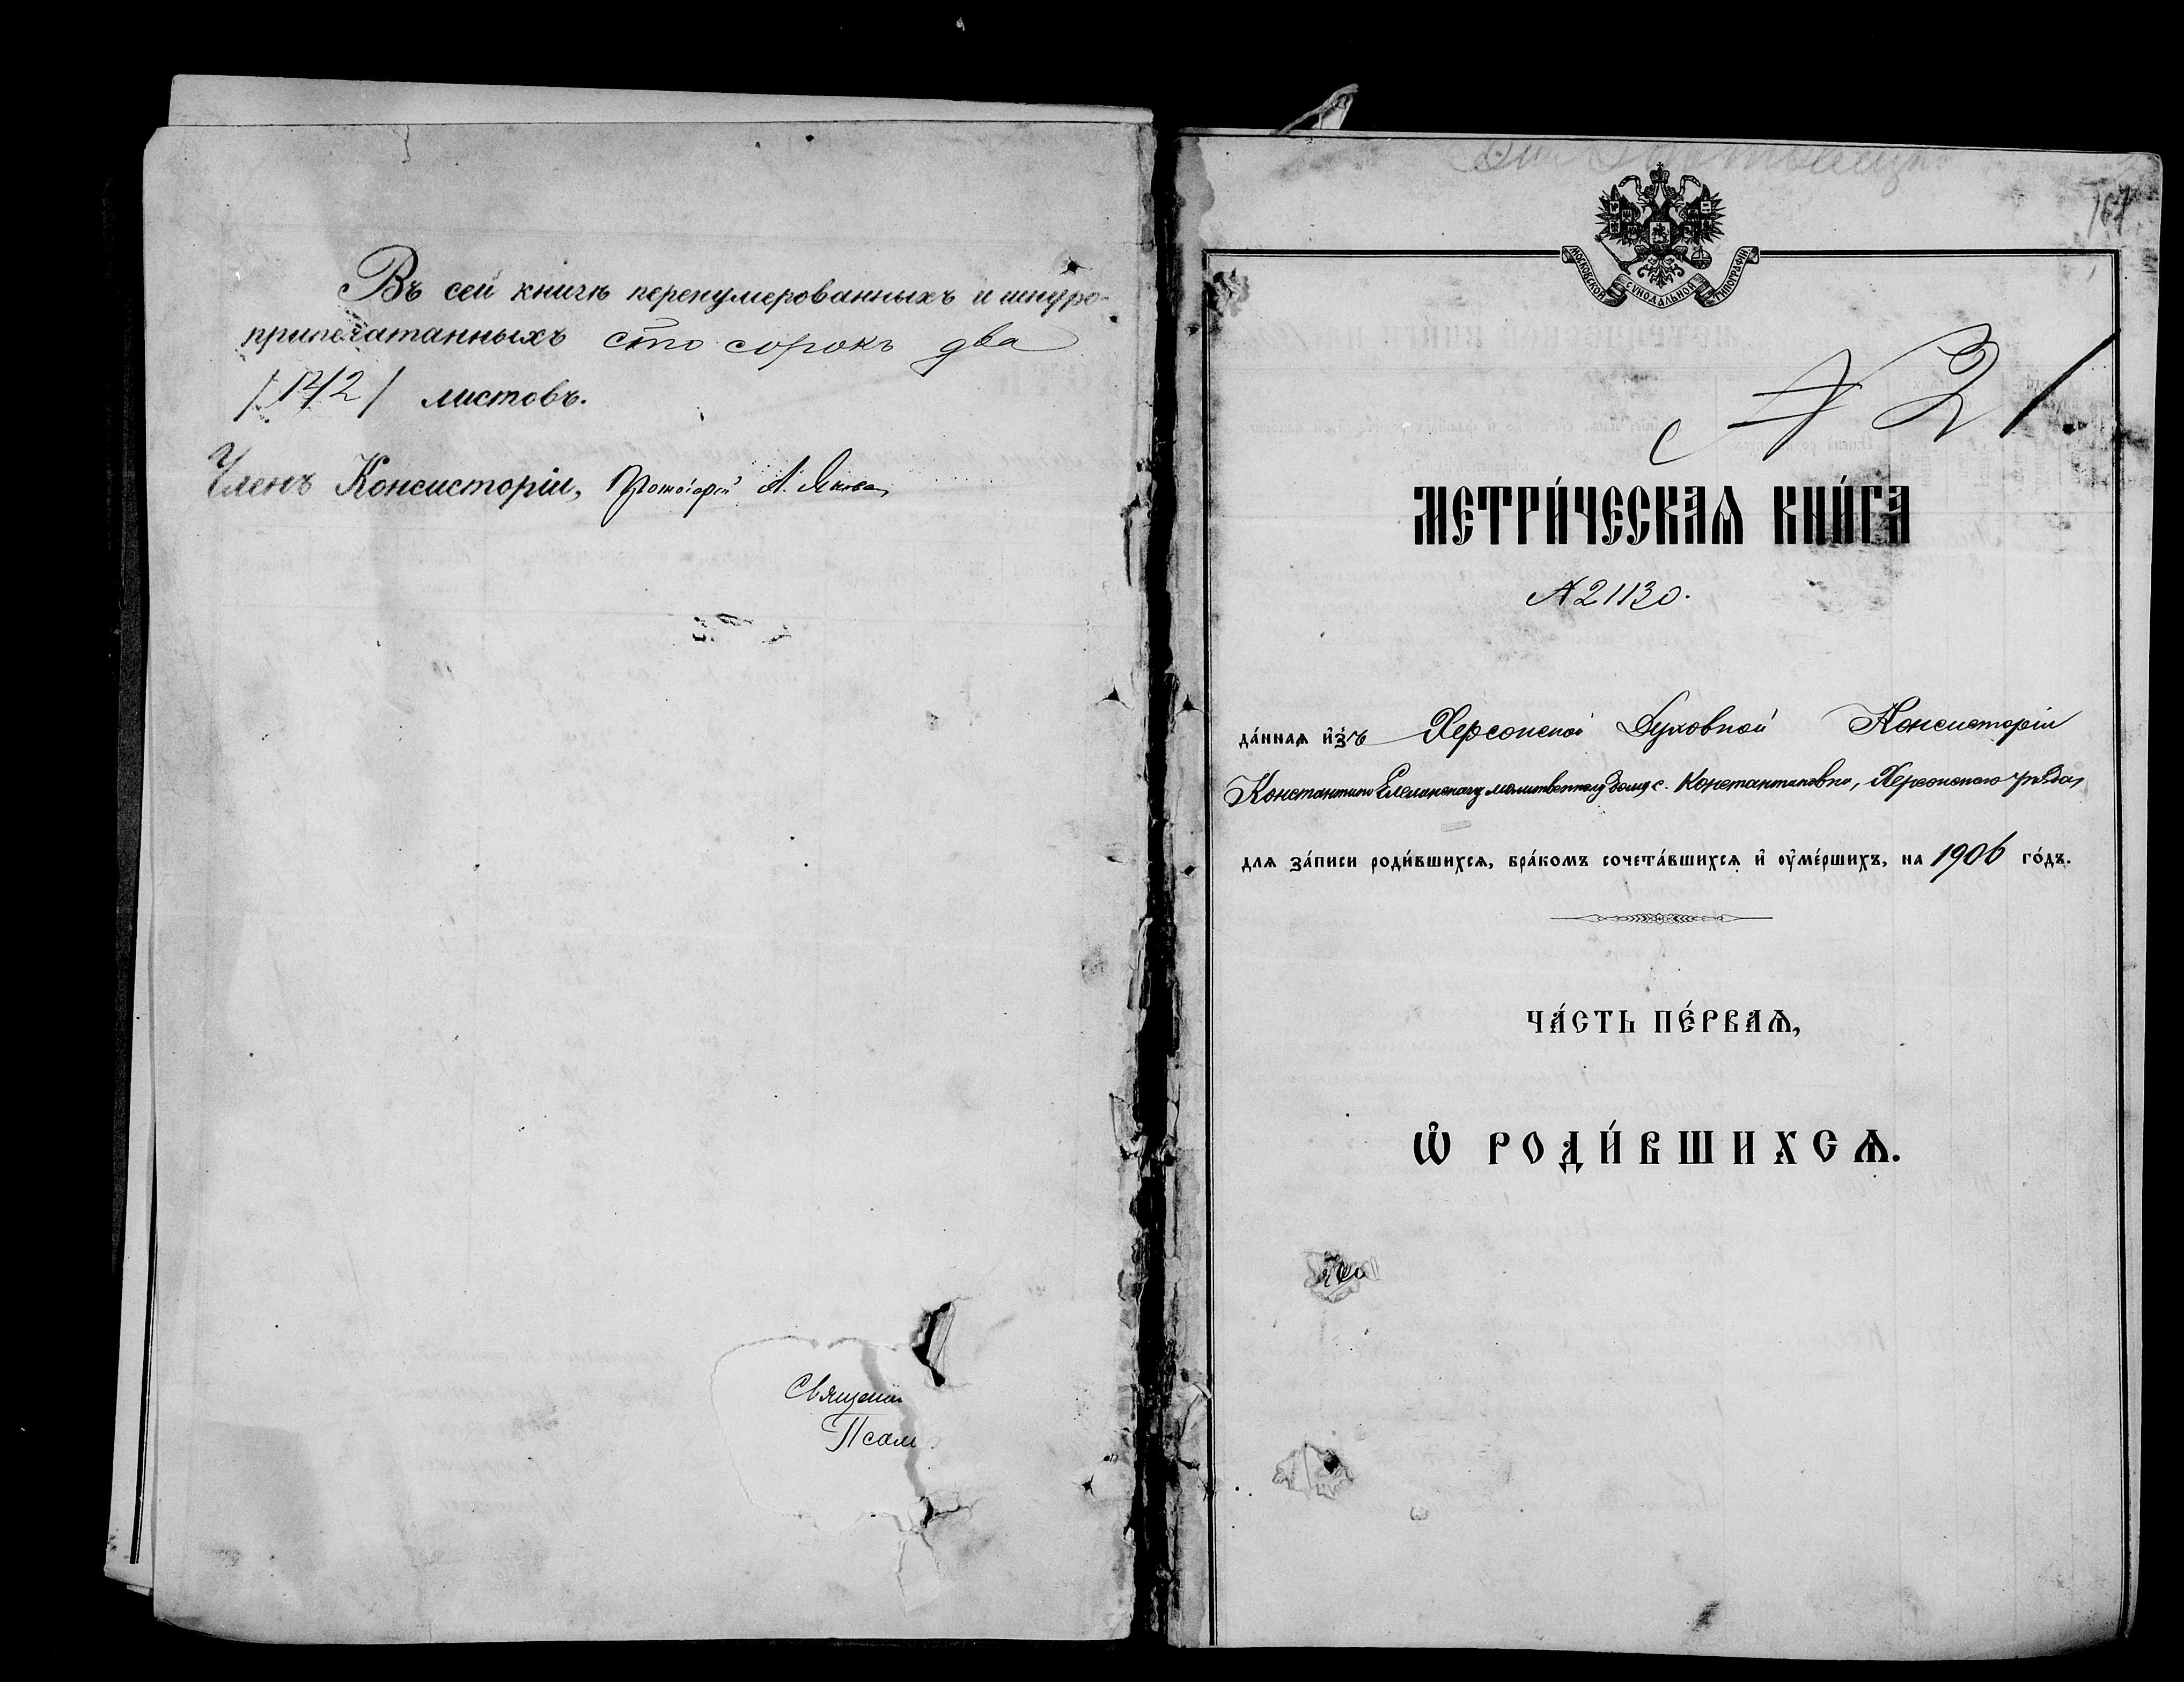 Въ сей книгѣ перенумерованныхъ и шнуро-
припечатанныхъ сто сорокъ два
/142/ листовъ.
Членъ Консисторіи, Протоіерей А.
Священ
Псал
167
МОСКОВСКОЙ СѴНОДАЛЬНОЙ ТИПОГРАФІИ
№ 21.
МЕТРИ́ЧЕСКАѦ КНИ́ГА
№ 21130.
да́ннаѧ и҆зъ Херсонской Духовной Консисторіи
Константино Еленинскому молитвенному дому с. Константиновки, Херсонскаго уѣзда,
для за́писи роди́вшихсѧ, бра́комъ сочета́вшихсѧ и҆ оу҆ме́ршихъ, на 1906 го́дъ.
ЧА́СТЬ ПЕ́РВАѦ,
Ѡ҆ РОДИ́ВШИХСѦ.